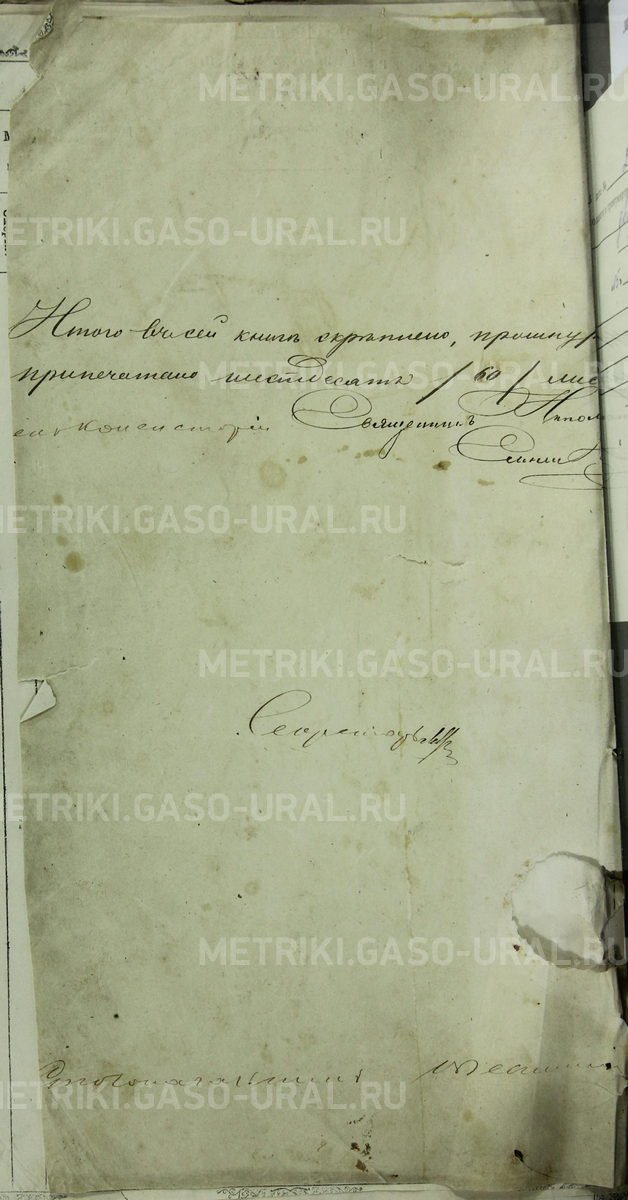 METRIKI.GASO-URAL.RU
METRIKI.GASO-URAL.RU
Итого в сей книгѣ скрѣплено, прошнур
припечатано шестдесятъ /60/ лис
Священникъ Иппол
консисторіи
METRIKI.GASO-URAL.RU
METRIKI.GASO-URAL.RU
Секретарь
METRIKI.GASO-URAL.RU
METRIKI.GASO-URAL.RU
Столоначальникъ
METRIKI.GASO-URAL.RU